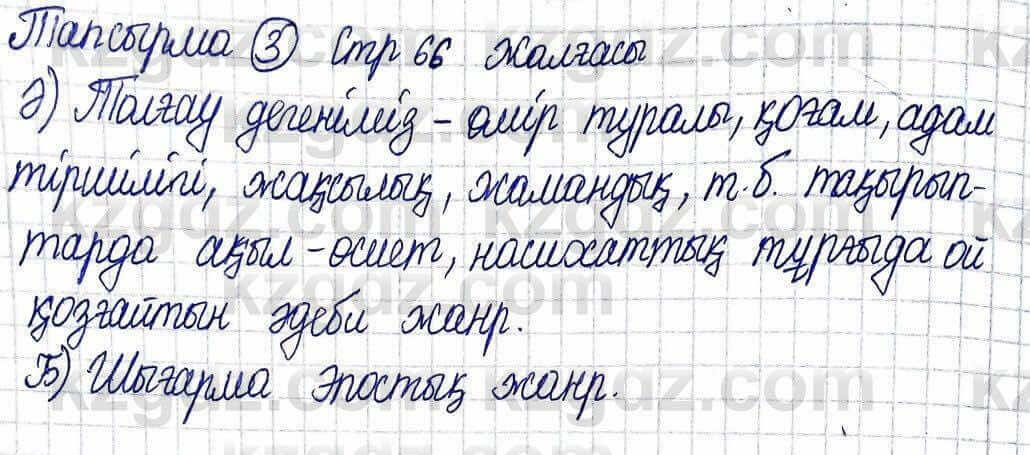 Тапсырма ③ Стр 66 жалғасы
Ә) Толғау дегеніміз – өмір туралы, қоғам, адам
тіршілігі, жақсылық, жамандық, т.б. тақырып-
тарда ақыл-өсиет, насихаттық тұрғыда ой
қозғайтын әдеби жанр.
Б) Шығарма эпостық жанр.